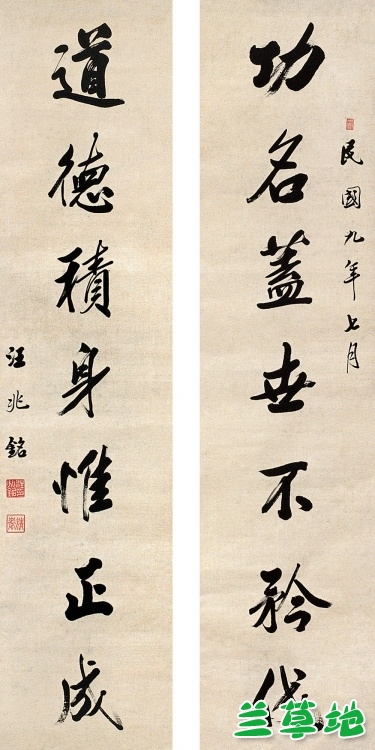 民國九年七月
功名蓋世不矜伐
道德積身惟正成
汪兆銘
兰草地